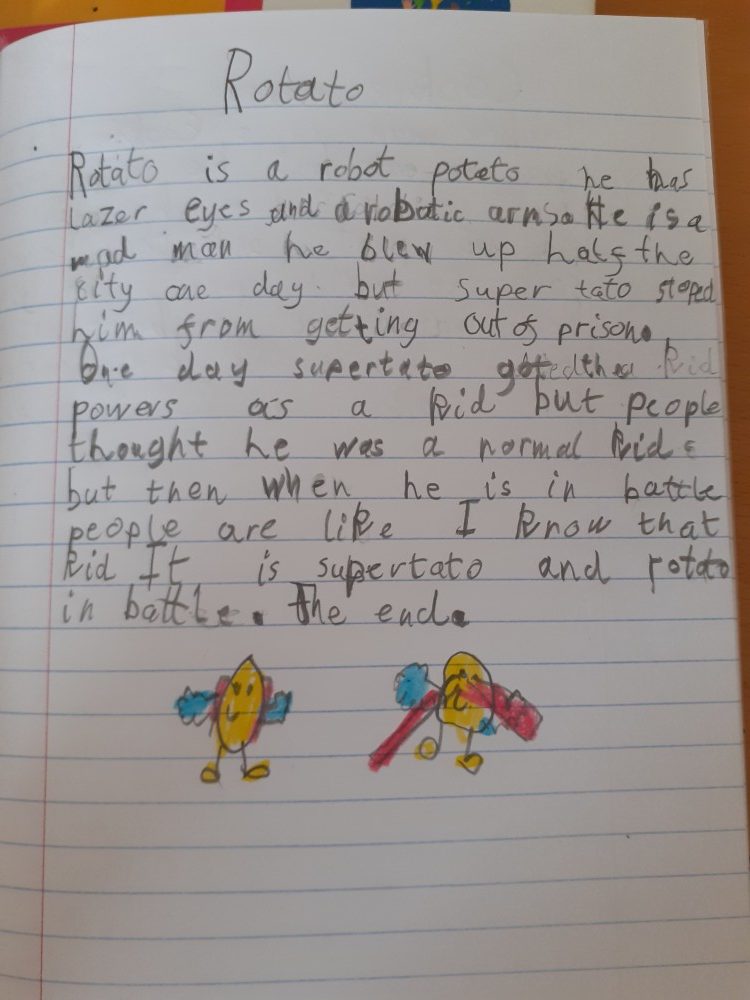 Rotato
Rotato is a robot poteto he has
Lazer eyes and a robotic arms. He is a
mad man he blew up half the
city one day. but super tato stoped
him from getting out of prison.
One day supertato the kid
powers as a kid but people
thought he was a normal kid
but then when he is in battle
people are like I know that
kid It is supertato and rotato
in battle. The end.